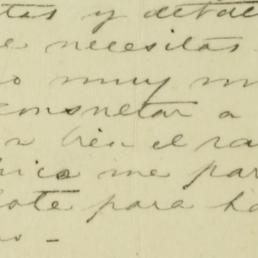 tas y detal
e necesitas
o muy m
consultar a
n bien el ra
hica me par
lote para ha
o —